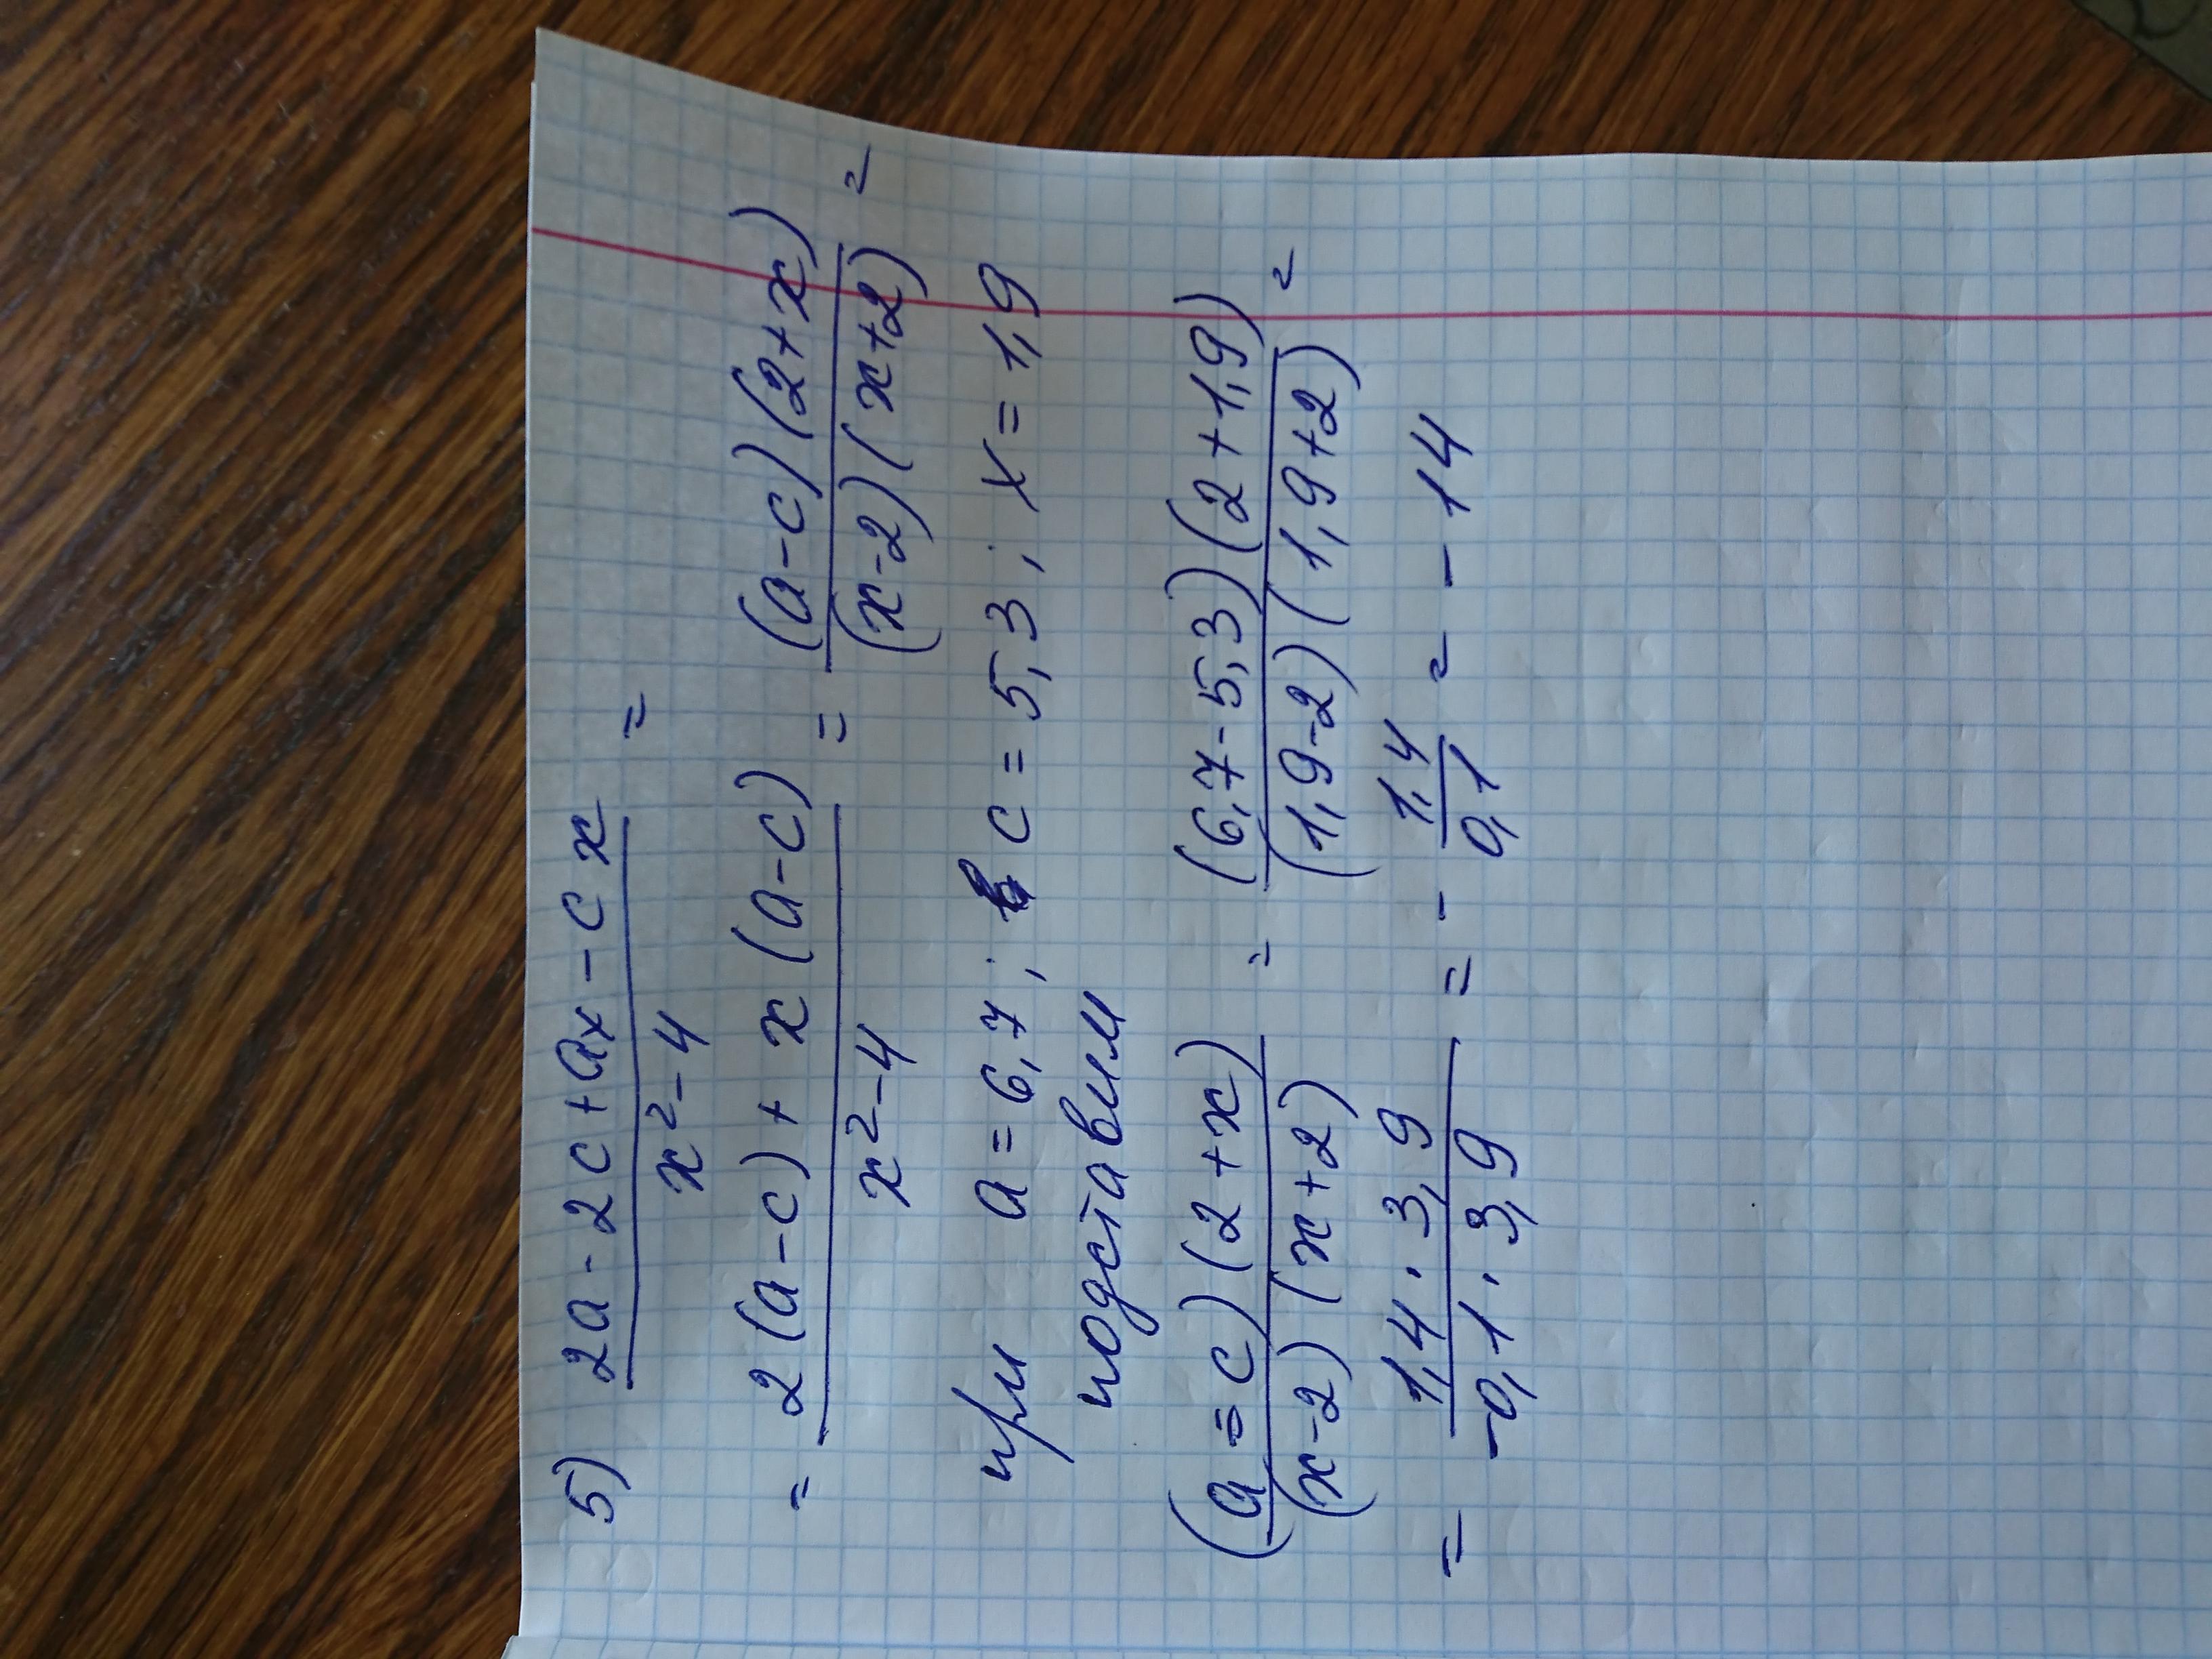 5) 2a - 2c + ax - cx =
x² - 4
= 2(a - c) + x(a - c) = (a - c)(2 + x) =
x² - 4 (x - 2)(x + 2)
при a = 6,7; c = 5,3; x = 1,9
подставим
(a = c)(2 + x) = (6,7 - 5,3)(2 + 1,9) =
(x - 2)(x + 2) (1,9 - 2)(1,9 + 2)
= 1,4 · 3,9 = - 1,4 = - 14
-0,1 · 3,9 0,1